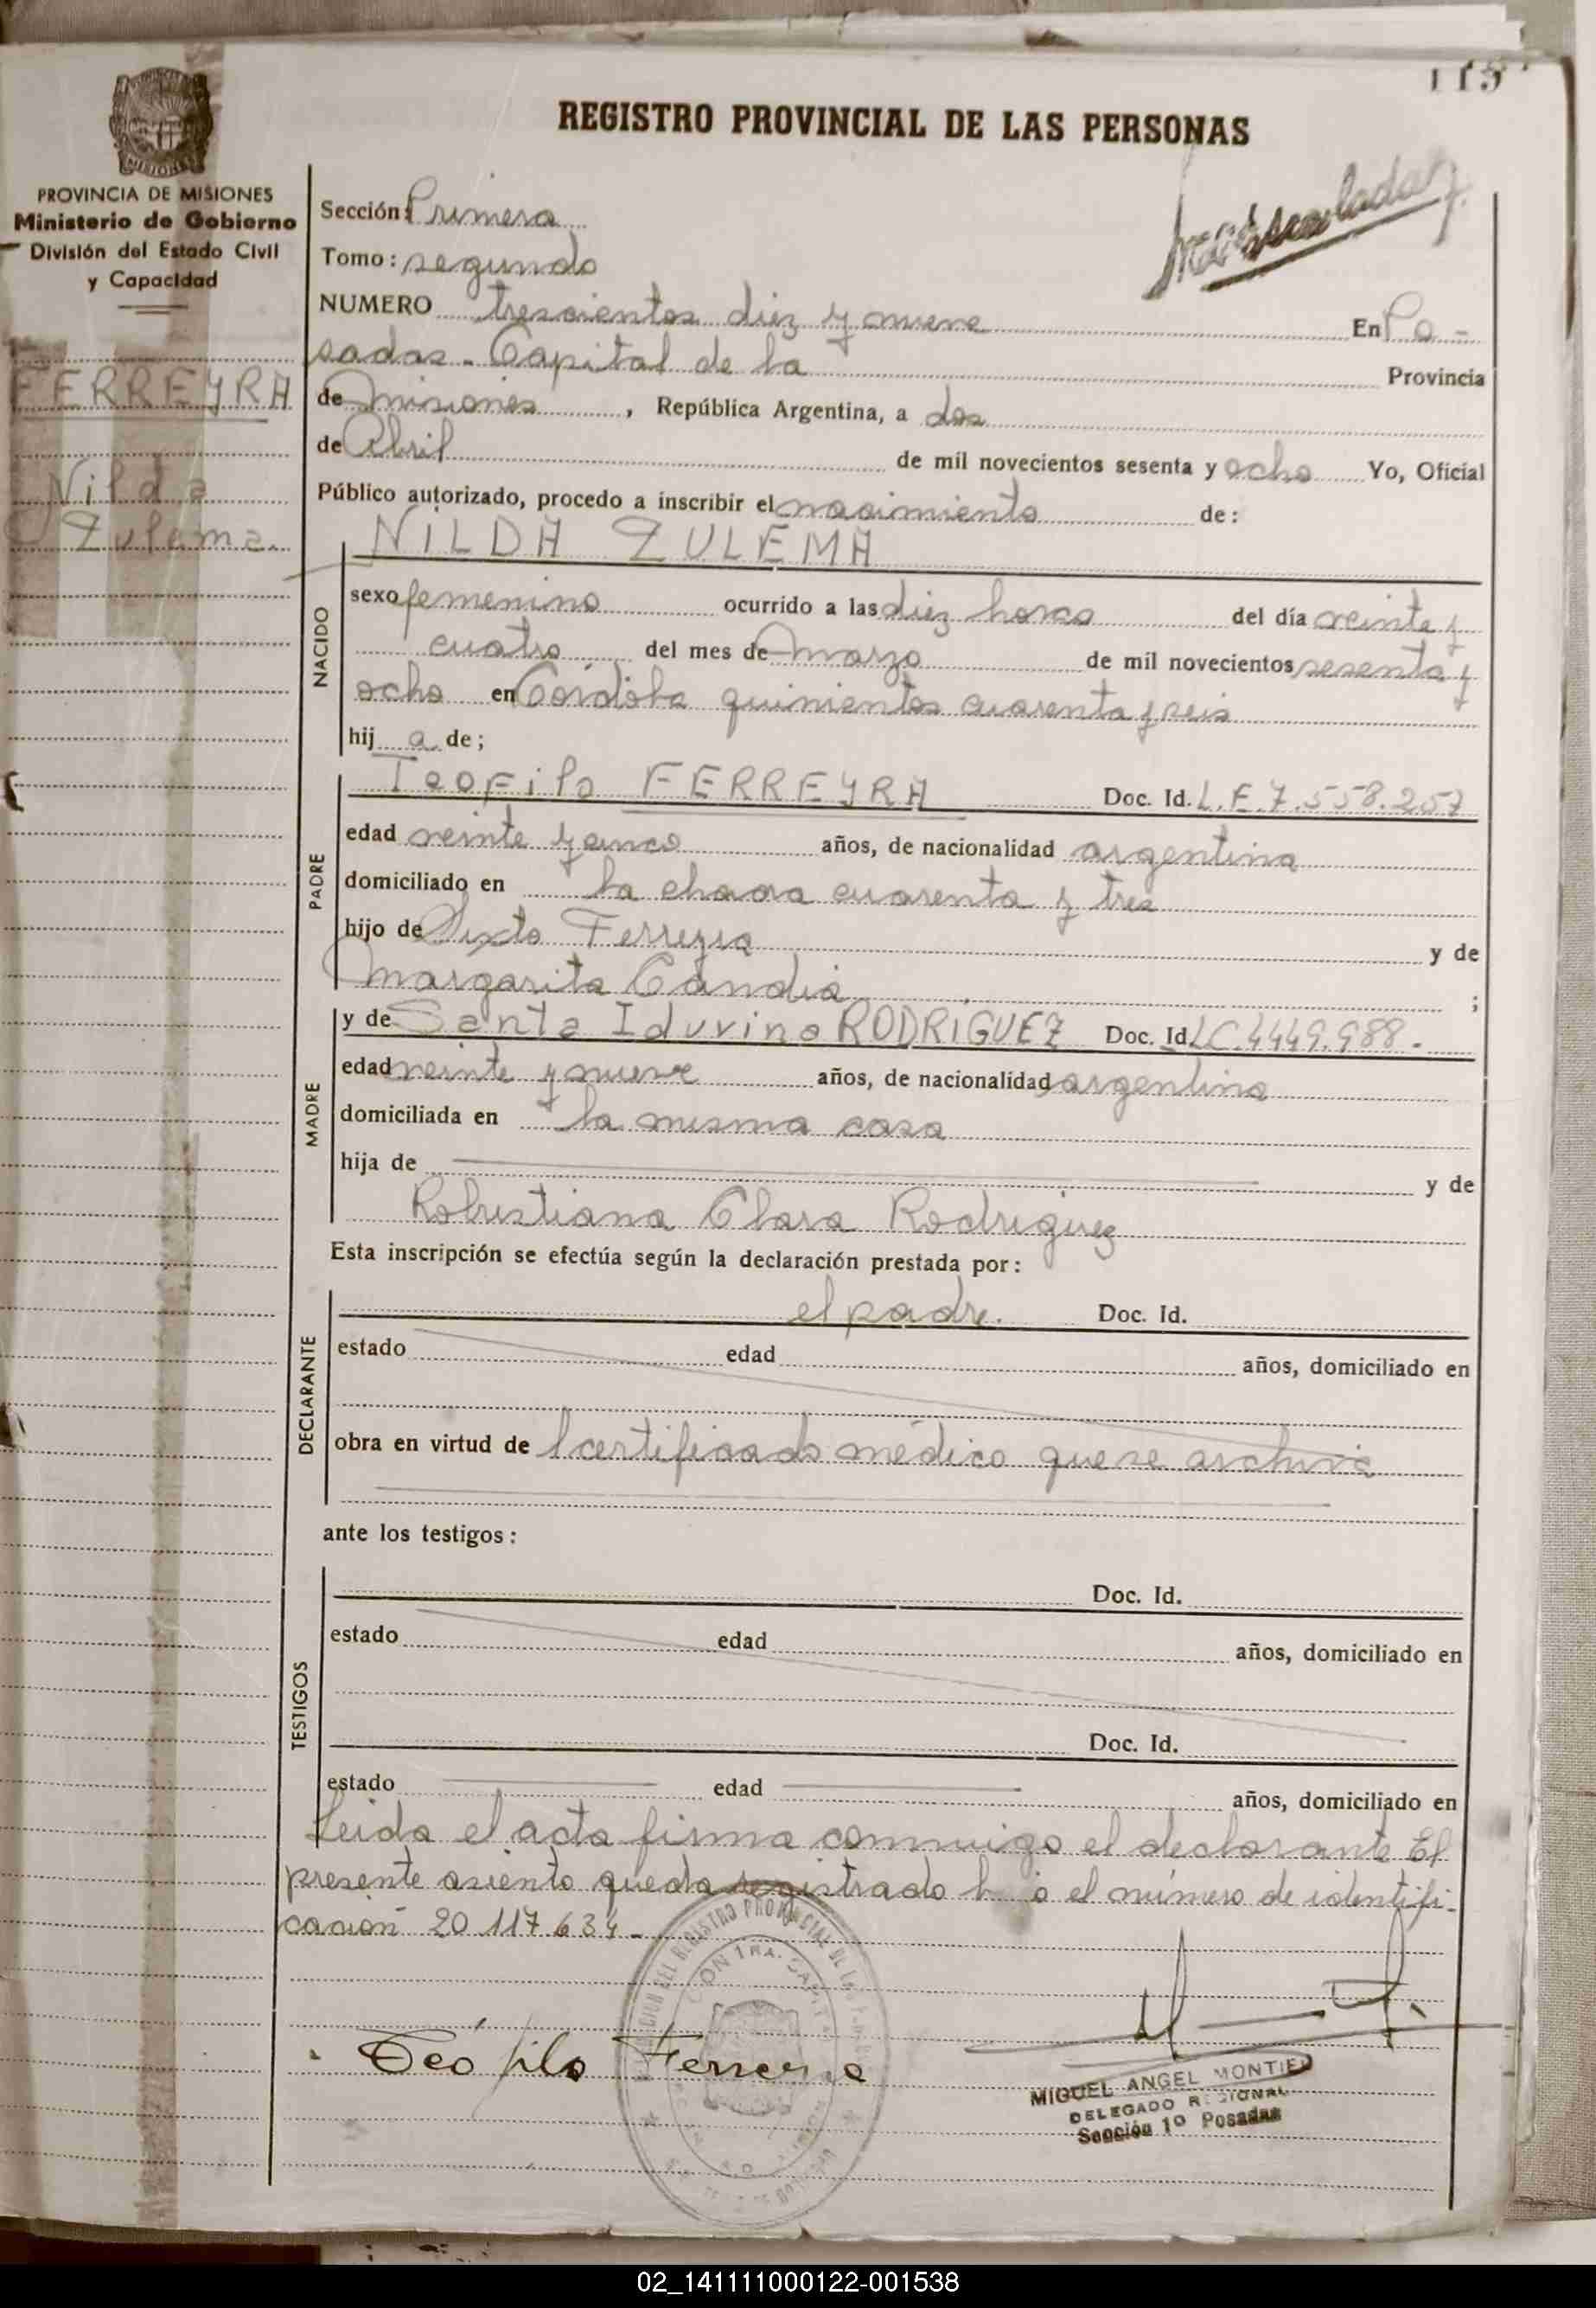 115
REGISTRO PROVINCIAL DE LAS PERSONAS
PROVINCIA DE MISIONES
Ministerio de Gobierno
División del Estado Civil
y Capacidad
FERREYRA
Nilda
Zulema.
Sección: Primera
Tomo: segundo
NUMERO trescientos diez y nueve En Po-
sadas - Capital de la Provincia
de Misiones, República Argentina, a dos
de Abril de mil novecientos sesenta y ocho Yo, Oficial
Público autorizado, procedo a inscribir el nacimiento de:
NILDA ZULEMA
NACIDO
sexo femenino ocurrido a las diez horas del día veinte y
cuatro del mes de Marzo de mil novecientos sesenta y
ocho en Córdoba quinientos cuarenta y seis
hij a de;
PADRE
Teofilo FERREYRA Doc. Id. L.E.7.558.257
edad veinte y cinco años, de nacionalidad argentina
domiciliado en la chacra cuarenta y tres
hijo de Sixto Ferreyra y de
Margarita Candia ;
MADRE
y de Santa Iduvina RODRIGUEZ Doc. Id. LC.4449.988.
edad veinte y nueve años, de nacionalidad argentina
domiciliada en la misma casa
hija de y de
Robustiana Clara Rodriguez
Esta inscripción se efectúa según la declaración prestada por:
DECLARANTE
el padre. Doc. Id.
estado edad años, domiciliado en
obra en virtud de l certificado médico que se archiva
ante los testigos:
TESTIGOS
Doc. Id.
estado edad años, domiciliado en
Doc. Id.
estado edad años, domiciliado en
Leida el acta firma conmigo el declarante El
presente asiento queda registrado bajo el número de identifi-
cación 20 117.634-
Teófilo Ferreyra
MIGUEL ANGEL MONTIEL
DELEGADO REGIONAL
Sección 1º Posadas
02_141111000122-001538